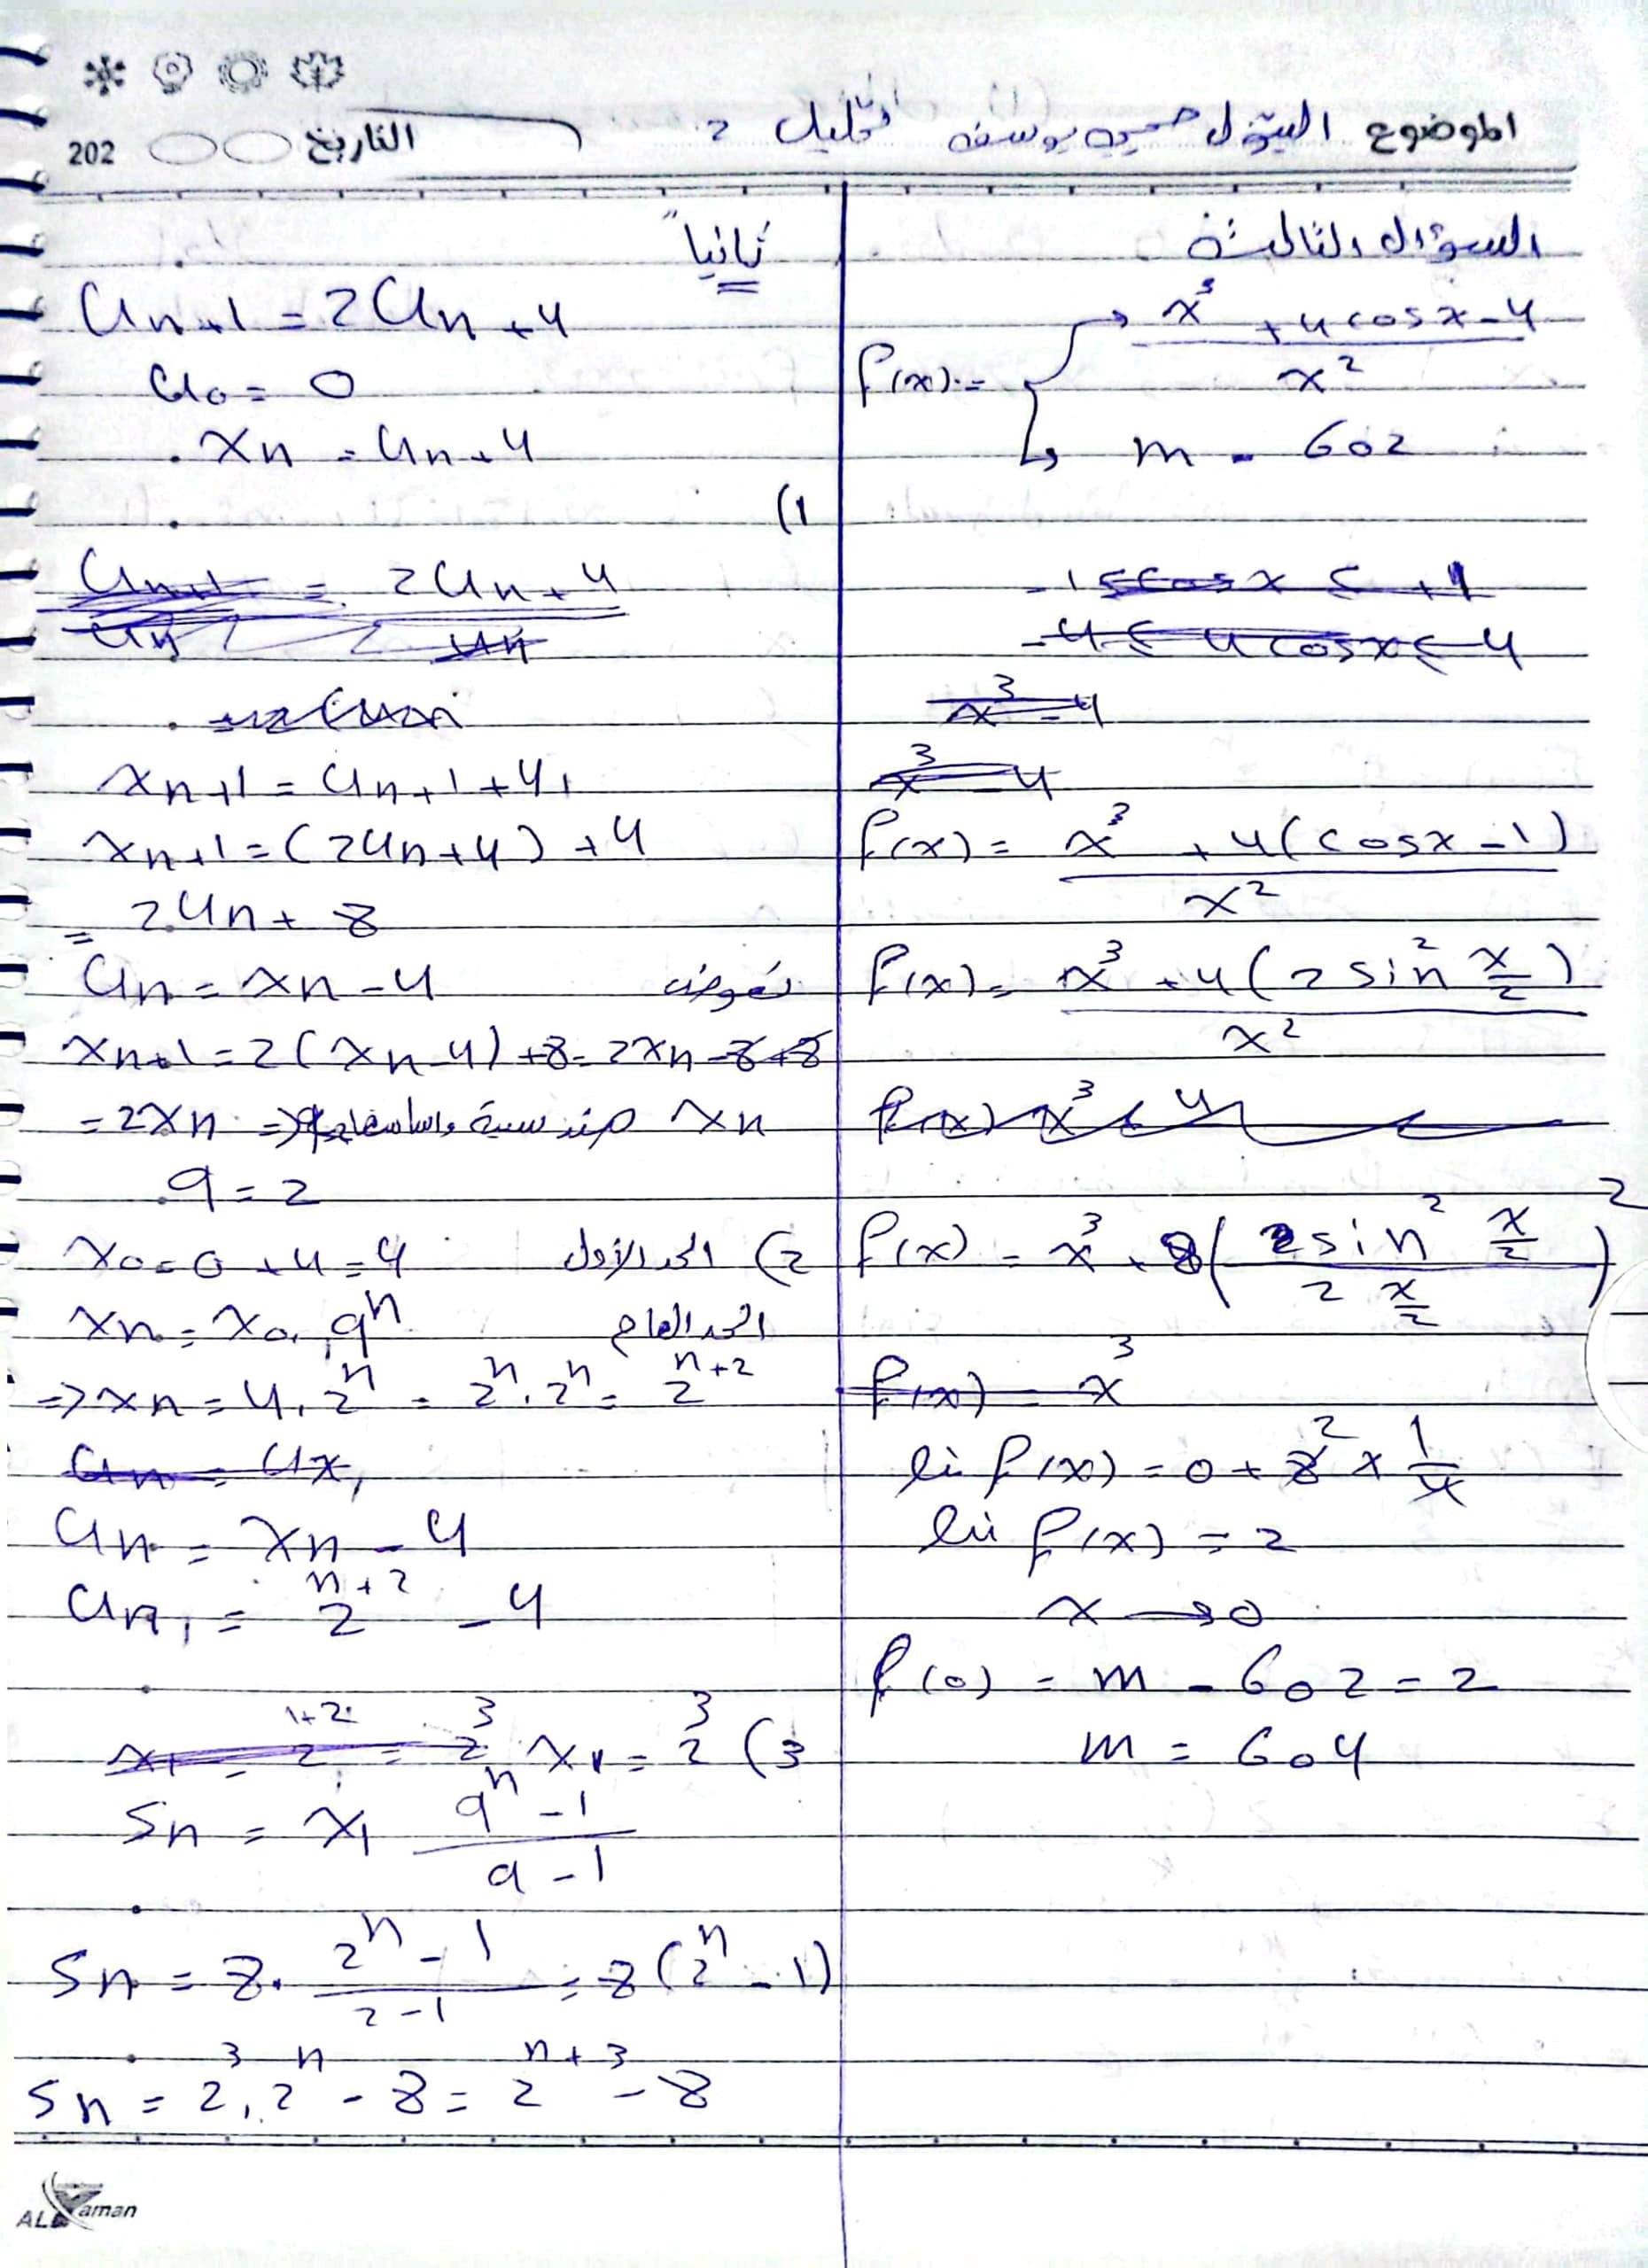 الموضوع البتول حسين يوسف تحليل 2
التاريخ 202
السؤال الثالث
f(x) = x³ + 4cosx - 4 / x²
m - 602
-1 ≤ cosx ≤ +1
-4 ≤ 4cosx ≤ 4
x³ - 4
x³ - 4
f(x) = x³ + 4(cosx - 1) / x²
f(x) = x³ + 4(2sin² x/2) / x²
f(x) x³ + 4
f(x) = x³ + 8(2sin² x/2 / 2 x/2)²
f(x) = x³
lim f(x) = 0 + 8² × 1/4
lim f(x) = 2
x → 0
f(0) = m - 602 = 2
m = 604
ثانياً
Un+1 = 2Un + 4
U0 = 0
xn = Un + 4
(1
Un+1 / Un = 2Un + 4 / Un
xn+1 = Un+1 + 4
xn+1 = (2Un + 4) + 4
= 2Un + 8
Un = xn - 4 نعوض
xn+1 = 2(xn - 4) + 8 = 2xn - 8 + 8
= 2xn => xn هندسية واساسها
q = 2
(2 الحد الأول x0 = 0 + 4 = 4
الحد العام xn = x0 . qⁿ
=> xn = 4 . 2ⁿ = 2ⁿ . 2ⁿ = 2ⁿ⁺²
Un = Ux
Un = xn - 4
Un = 2ⁿ⁺² - 4
x1 = 2¹⁺² = 2³ x1 = 2³ (3
Sn = x1 qⁿ - 1 / q - 1
Sn = 8 . 2ⁿ - 1 / 2 - 1 = 8(2ⁿ - 1)
Sn = 2³ . 2ⁿ - 8 = 2ⁿ⁺³ - 8
ALYaman